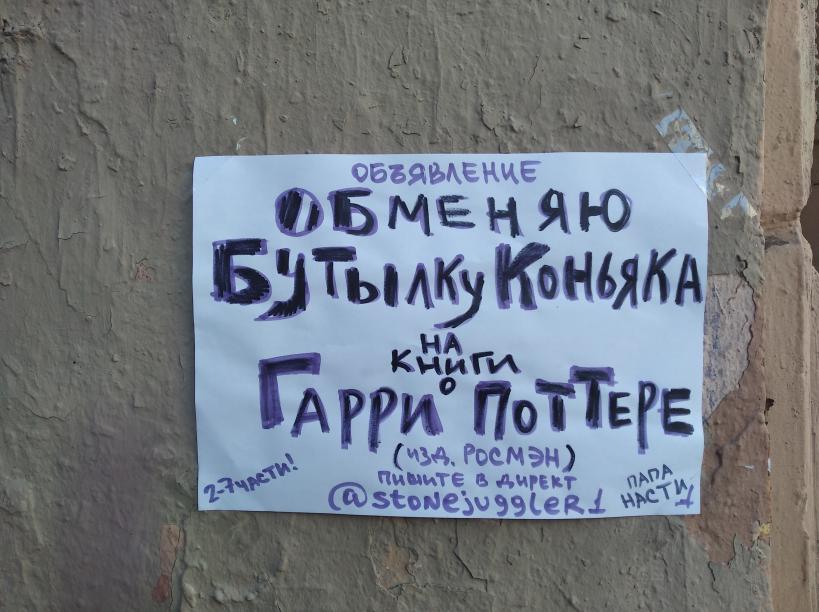 ОБЪЯВЛЕНИЕ
ОБМЕНЯЮ
БУТЫЛКУ КОНЬЯКА
НА
КНИГИ
О
ГАРРИ ПОТТЕРЕ
(ИЗД. РОСМЭН)
2-7 ЧАСТИ!
ПИШИТЕ В ДИРЕКТ
@stonejuggler1
ПАПА
НАСТИ